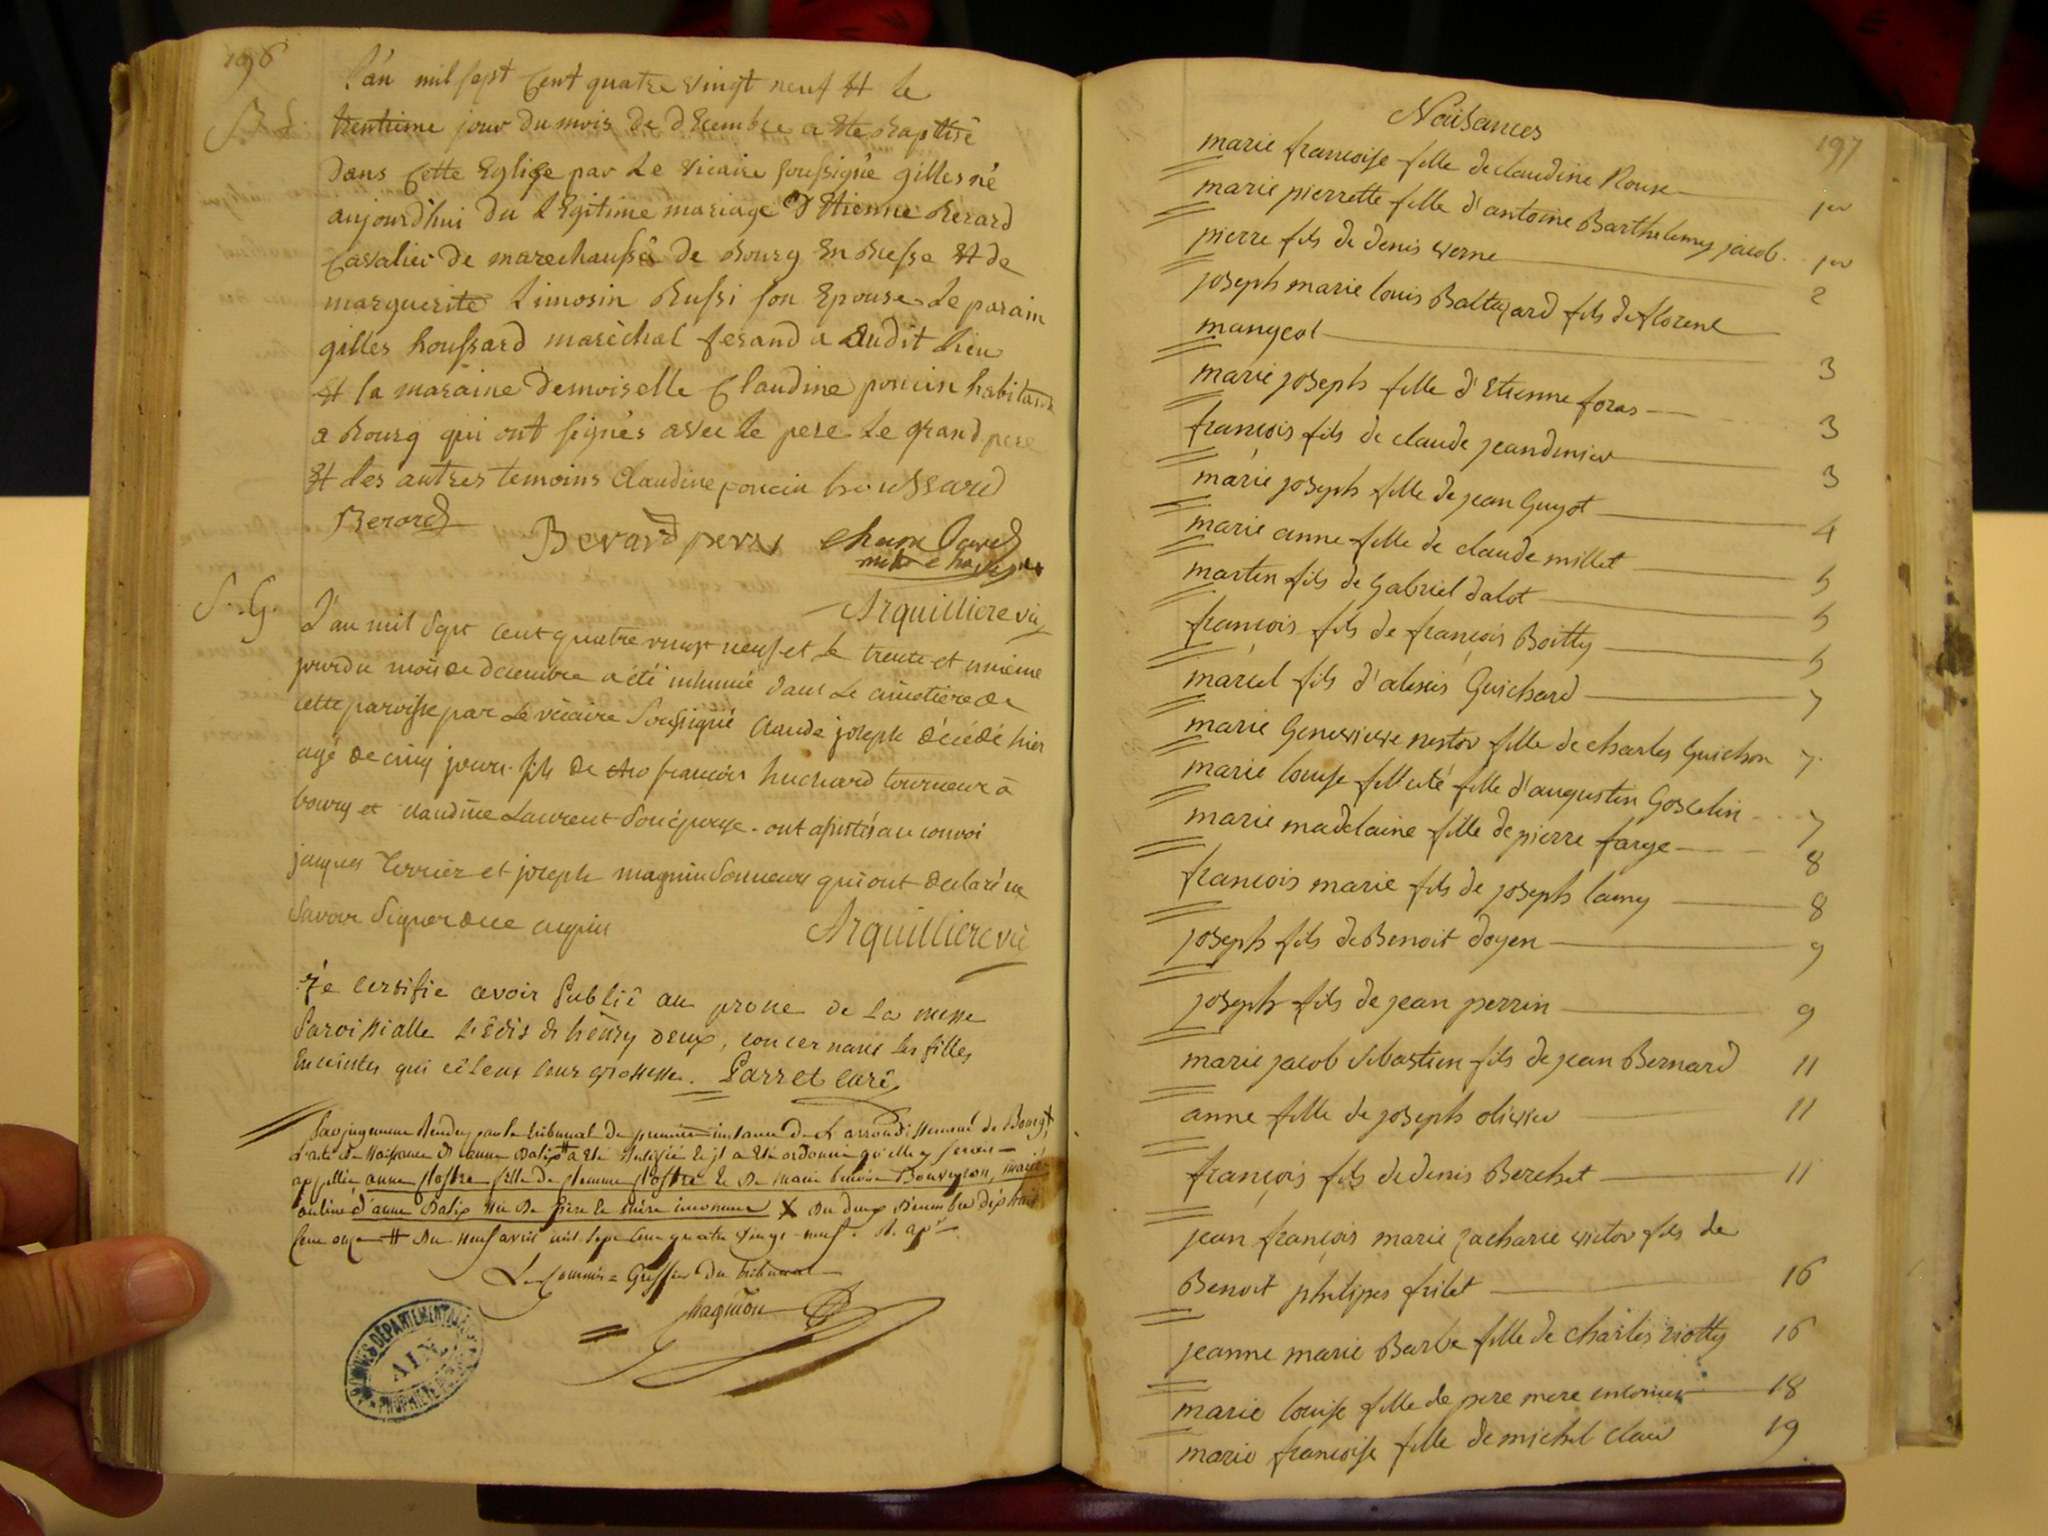 196
B. L.
L'an mil sept cent quatre vingt neuf et le
trentieme jour du mois de decembre a ete baptisé
dans cette Eglise par le vicaire soussigné gilles né
aujourd'hui du legitime mariage d'Etienne Berard
cavalier de marechaussé de Bourg en Bresse et de
marguerite Limosin Bussi son Epouse. Le parain
gilles houssard maréchal ferand a dudit lieu
et la maraine demoiselle Claudine poncin habitante
a Bourg qui ont signés avec le pere le grand pere
et les autres temoins Claudine poncin houssard
Berard Berard pere
Arquilliere vic
S. G.
L'an mil Sept cent quatre vingt neuf et le trente et unieme
jour du mois de decembre a été inhumé dans le cimetiere de
cette paroisse par le vicaire Soussigné Claude joseph décédé hier
agé de cinq jours fils de françois huchard tourneur à
bourg et claudine Laurent Son épouse. ont assistés au convoi
jacques Terrier et joseph magnin Sonneurs qui ont declaré ne
Savoir Signer de ce enquis Arquilliere vic
Je certifie avoir Publié au prone de la messe
Paroissialle L'édit de henry deux, concernant les filles
Enceintes qui célent leur grossesse. Parret curé
Par jugement Rendu par le tribunal de premiere instance de L'arrondissement de Bourg
L'acte de Naissance d'anne Balix # a été Rectifié et il a été ordonné qu'elle y seroit
appellée anne flostre fille de flostre et de marie Bouveyron,
au lieu d'anne Balix Née de Père et Mère inconnus X du deux Décembre dix huit
Cent onze # du neuf avril mil sept cent quatre vingt neuf.
Le Commis Greffier du tribunal
ARCHIVES DÉPARTEMENTALES
AIN
PROPRIÉTÉ
Naisances
197
marie françoise fille de claudine Roux 1er
marie pierrette fille d'antoine Barthelemy jacob. 1er
pierre fils de denis verne 2
joseph marie louis Baltazard fils de florent
mangeot 3
marie joseph fille d'Etienne foras 3
françois fils de claude jeandenier 3
marie joseph fille de jean Guyot 4
marie anne fille de claude millet 5
martin fils de Gabriel dalot 5
françois fils de françois Boitty 5
marcel fils d'alexis Guichard 7
marie Genevieve nestor fille de charles Guichon 7
marie louise felicité fille d'augustin Goscelin 7
marie madelaine fille de pierre farge 8
francois marie fils de joseph lamy 8
joseph fils de Benoit doyen 9
joseph fils de jean perrin 9
marie jacob sebastien fils de jean Bernard 11
anne fille de joseph olivier 11
françois fils de denis Berchet 11
jean françois marie zacharie victor fils de
Benoit philipes frilet 16
jeanne marie Barbe fille de charles viotty 16
marie louise fille de pere mere inconnus 18
marie françoise fille de michel clair 19